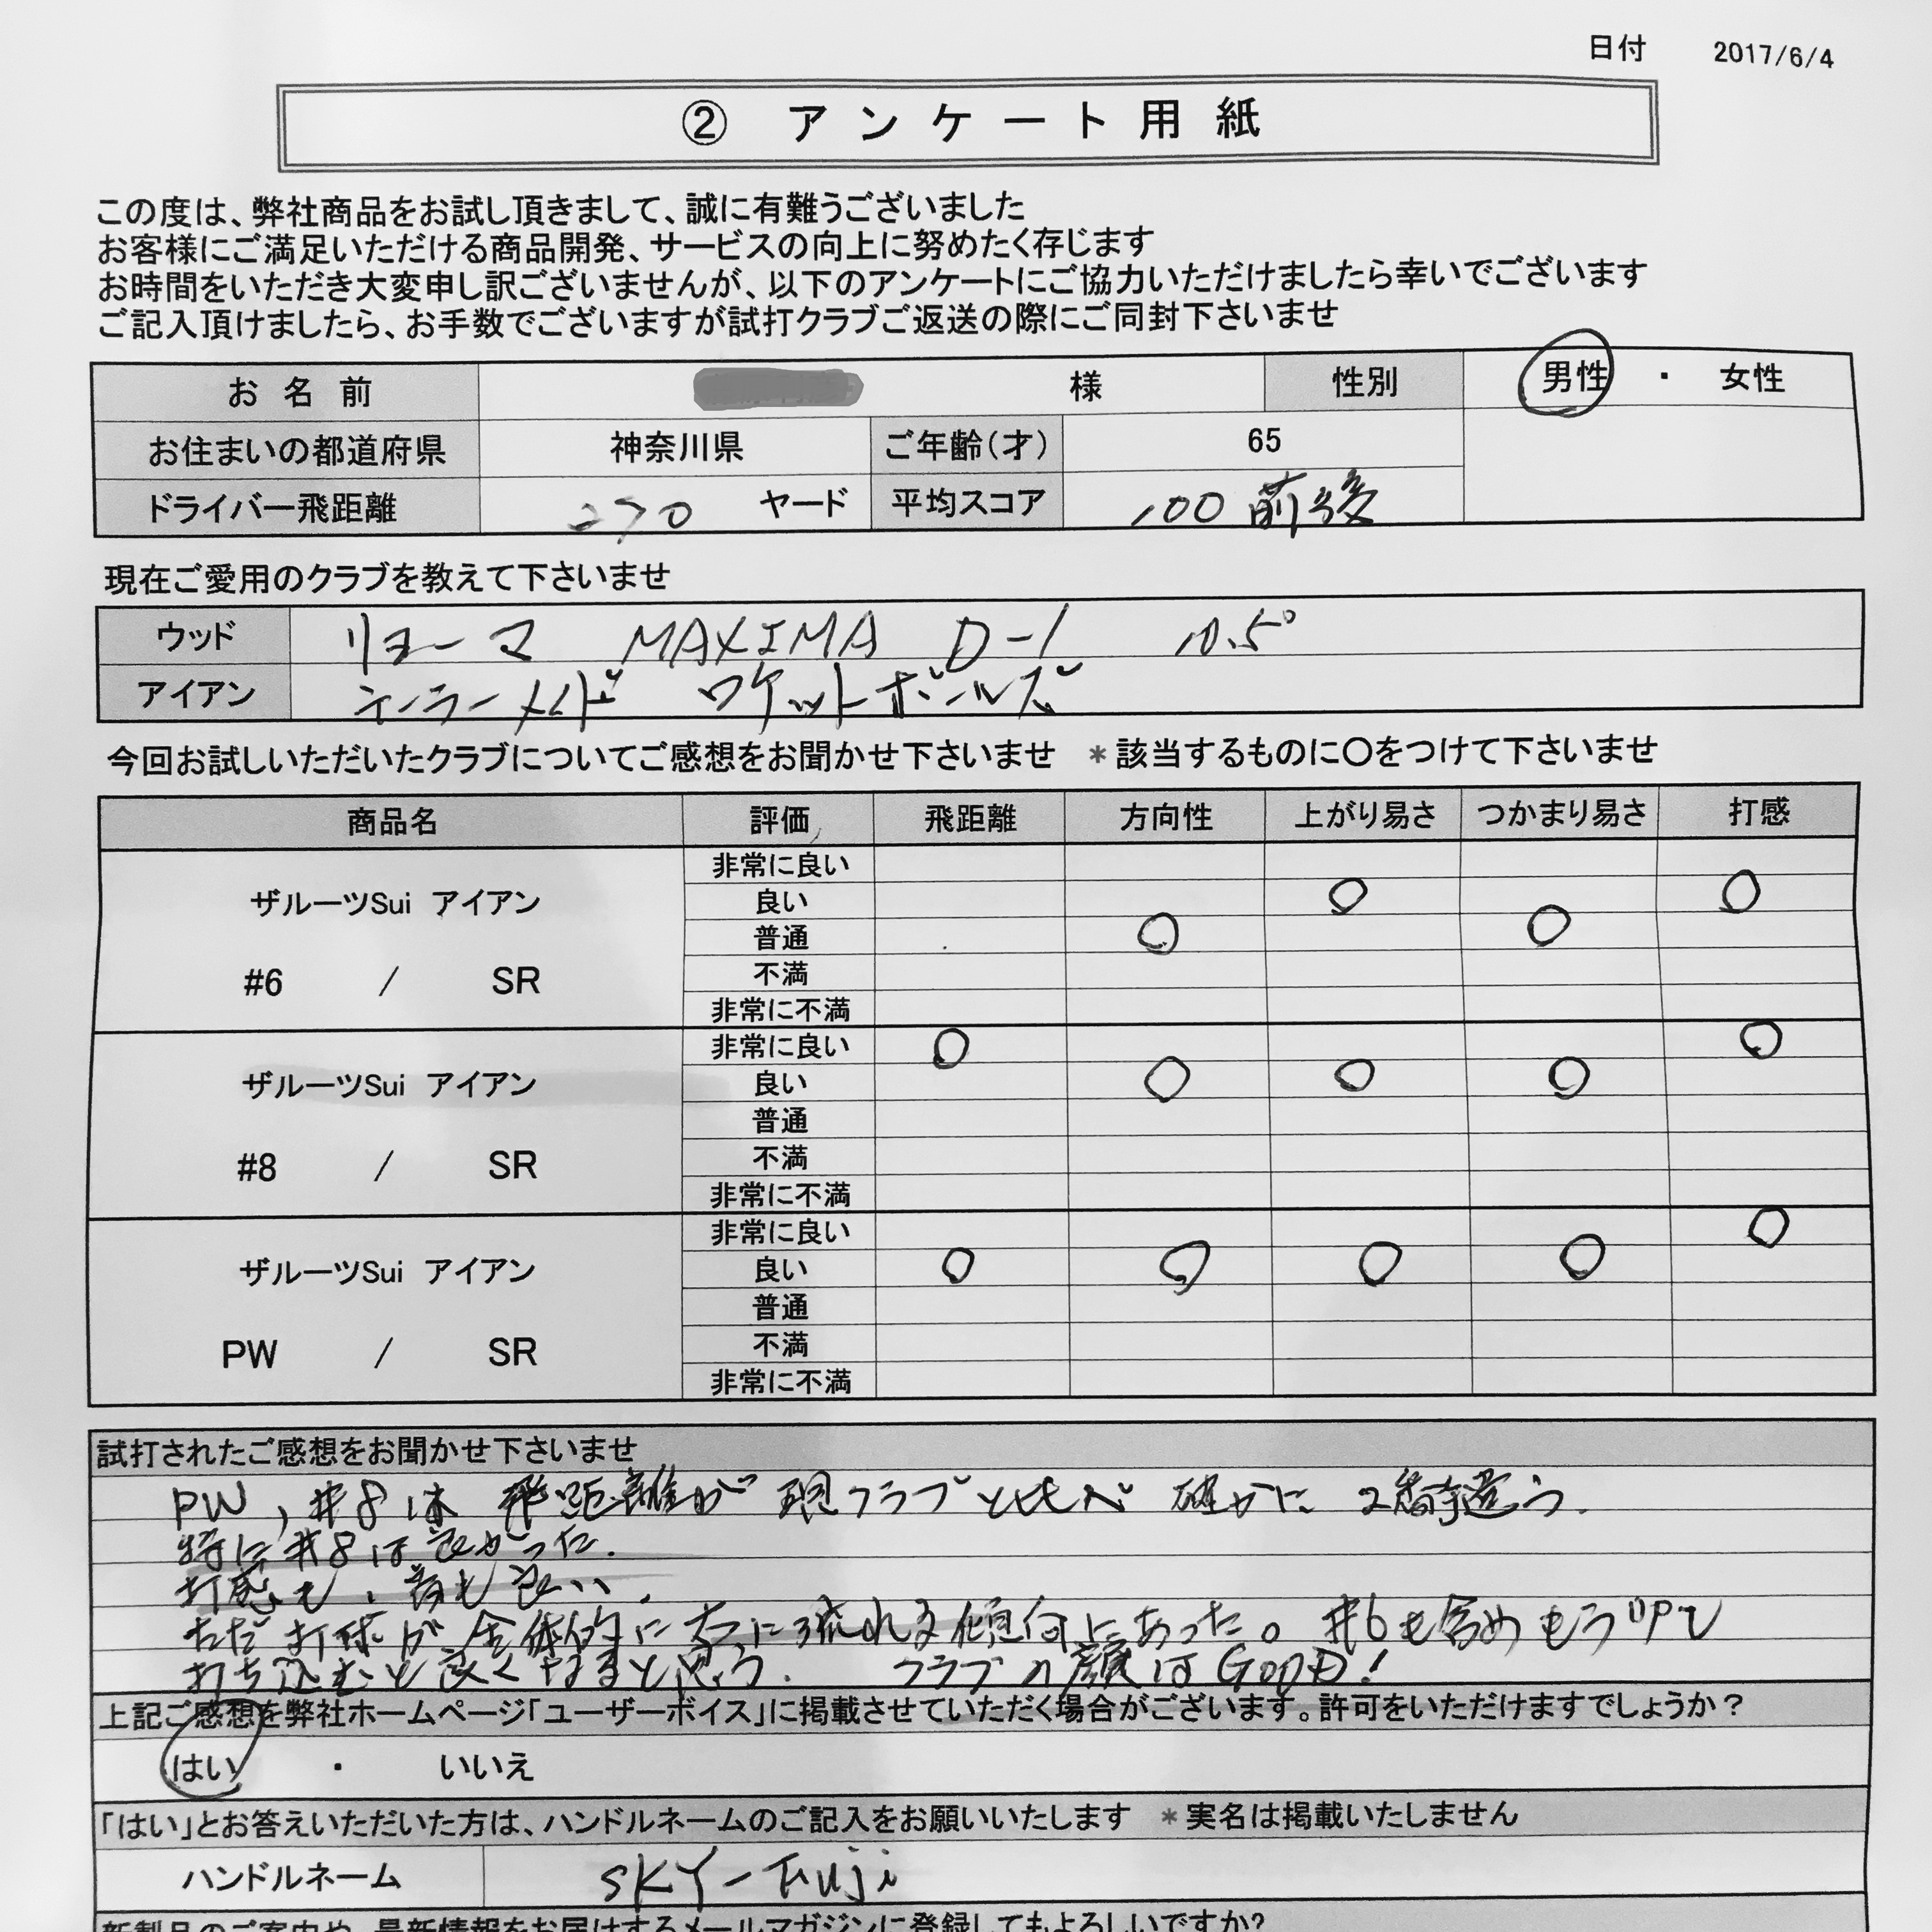 日付 2017/6/4
② アンケート用紙
この度は、弊社商品をお試し頂きまして、誠に有難うございました
お客様にご満足いただける商品開発、サービスの向上に努めたく存じます
お時間をいただき大変申し訳ございませんが、以下のアンケートにご協力いただけましたら幸いでございます
ご記入頂けましたら、お手数でございますが試打クラブご返送の際にご同封下さいませ
お名前 様 性別 男性 ・ 女性
お住まいの都道府県 神奈川県 ご年齢(才) 65
ドライバー飛距離 270 ヤード 平均スコア 100前後
現在ご愛用のクラブを教えて下さいませ
ウッド リョーマ MAXIMA D-1 10.5°
アイアン テーラーメイド ロケットボールズ
今回お試しいただいたクラブについてご感想をお聞かせ下さいませ *該当するものに〇をつけて下さいませ
商品名 評価 飛距離 方向性 上がり易さ つかまり易さ 打感
非常に良い
ザルーツSui アイアン 良い
普通
#6 / SR 不満
非常に不満
非常に良い
ザルーツSui アイアン 良い
普通
#8 / SR 不満
非常に不満
非常に良い
ザルーツSui アイアン 良い
普通
PW / SR 不満
非常に不満
試打されたご感想をお聞かせ下さいませ
PW, #8は 飛距離が現クラブと比べ 確かに2番手違う.
特に#8は良かった.
打感も、音も良い.
ただ打球が全体的に右に流れる傾向にあった。#6も含めもう少し
打ち込むと良くなると思う. クラブの顔はGOOD!
上記ご感想を弊社ホームページ「ユーザーボイス」に掲載させていただく場合がございます。許可をいただけますでしょうか?
はい ・ いいえ
「はい」とお答えいただいた方は、ハンドルネームのご記入をお願いいたします *実名は掲載いたしません
ハンドルネーム SKY-Fuji
新製品のご案内や、最新情報をお届けするメールマガジンに登録してもよろしいですか?